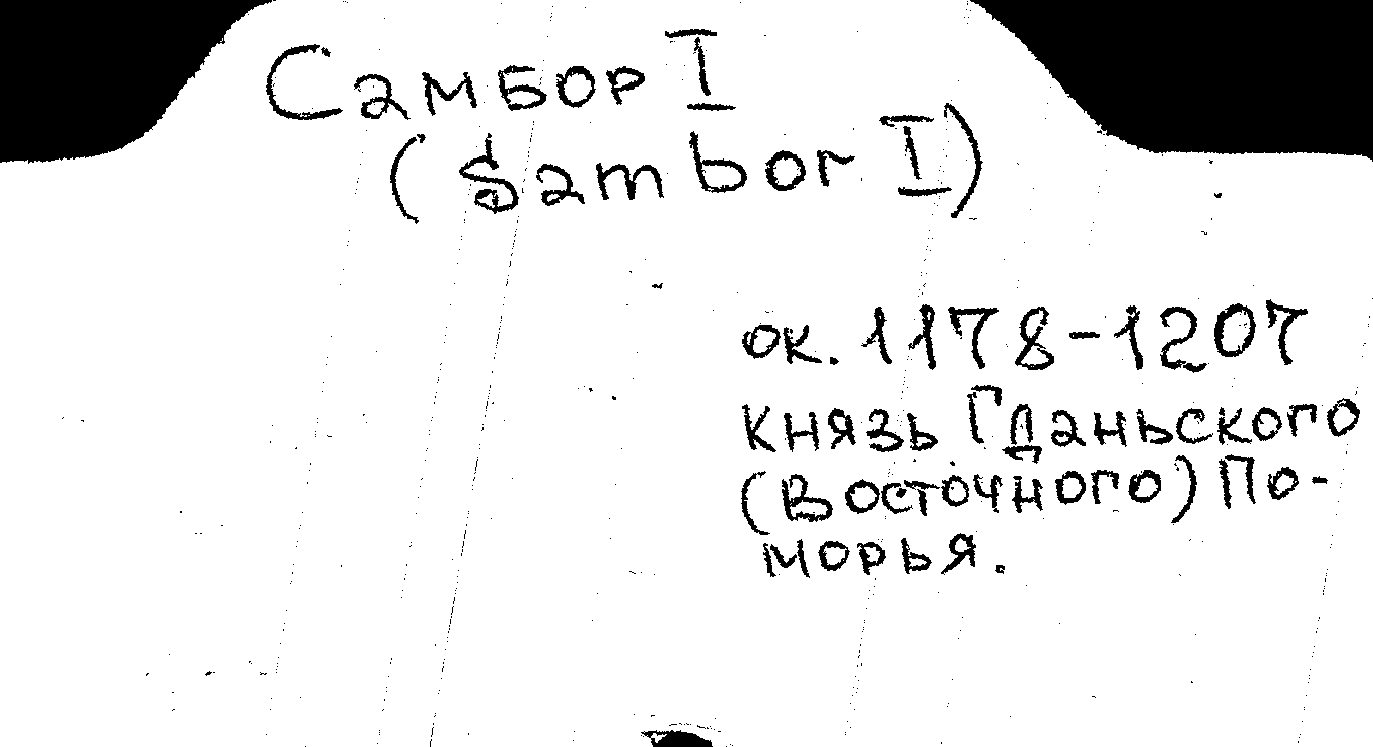 Самбор I
(Sambor I)
ок. 1178-1207
князь Гданьского
(Восточного) По-
морья.